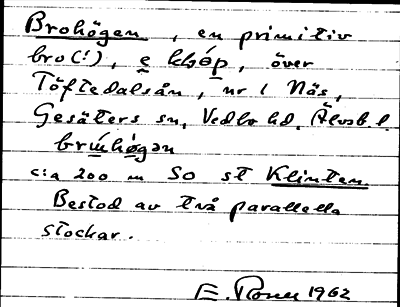 Brohögen, en primitiv
bro(!), e klóp, över
Töftedalsån, nr 1 Näs,
Gesäters sn, Vedbo hd, Älvsb. l.
brúhøgən
c:a 200 m SO st Klinten.
Bestod av två parallella
stockar.
E. 1962